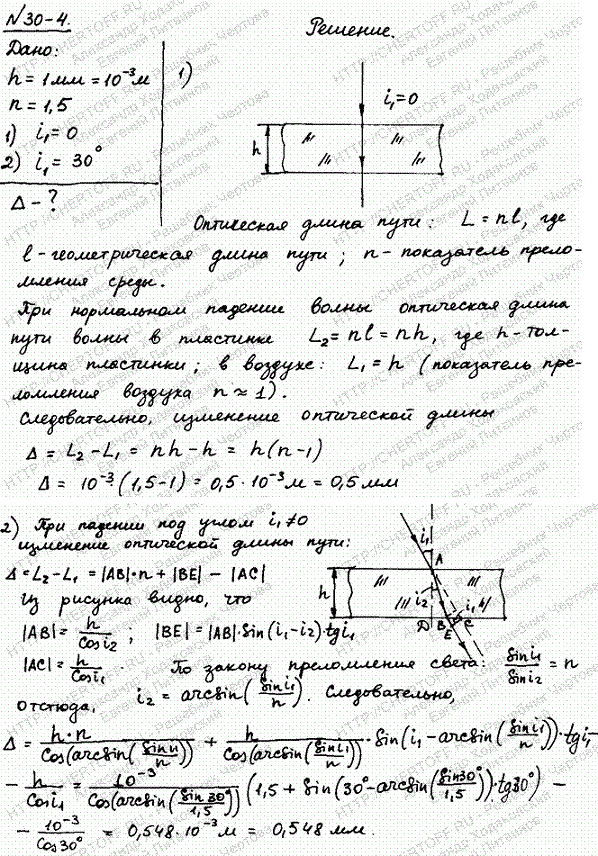 №30-4.
Решение.
Дано:
h = 1 мм = 10⁻³ м
n = 1,5
1) i₁ = 0
2) i₁ = 30°
Δ - ?
1)
i₁ = 0
h
Оптическая длина пути: L = nl, где
l - геометрическая длина пути; n - показатель прело-
мления среды.
При нормальном падении волны оптическая длина
пути волны в пластинке L₂ = nl = nh, где h - тол-
щина пластинки; в воздухе: L₁ = h (показатель пре-
ломления воздуха n ≈ 1).
Следовательно, изменение оптической длины
Δ = L₂ - L₁ = nh - h = h(n-1)
Δ = 10⁻³(1,5-1) = 0,5·10⁻³ м = 0,5 мм
2) При падении под углом i₁ ≠ 0
изменение оптической длины пути:
Δ = L₂ - L₁ = |AB|·n + |BE| - |AC|
Из рисунка видно, что
|AB| = h/cos i₂; |BE| = |AB|·sin(i₁-i₂)·tg i₁
i₁
A
h
i₂
i₁
D B C
E
|AC| = h/cos i₁. По закону преломления света: sin i₁/sin i₂ = n
отсюда, i₂ = arcsin(sin i₁/n). Следовательно,
Δ = h·n/cos(arcsin(sin i₁/n)) + h/cos(arcsin(sin i₁/n))·sin(i₁ - arcsin(sin i₁/n))·tg i₁ -
- h/cos i₁ = 10⁻³/cos(arcsin(sin 30°/1,5)) (1,5 + sin(30° - arcsin(sin 30°/1,5))·tg 30°) -
- 10⁻³/cos 30° = 0,548·10⁻³ м = 0,548 мм.
HTTP://CHERTOFF.RU - Решебник Чертова
Александр Ходаковский
Евгений Питанов